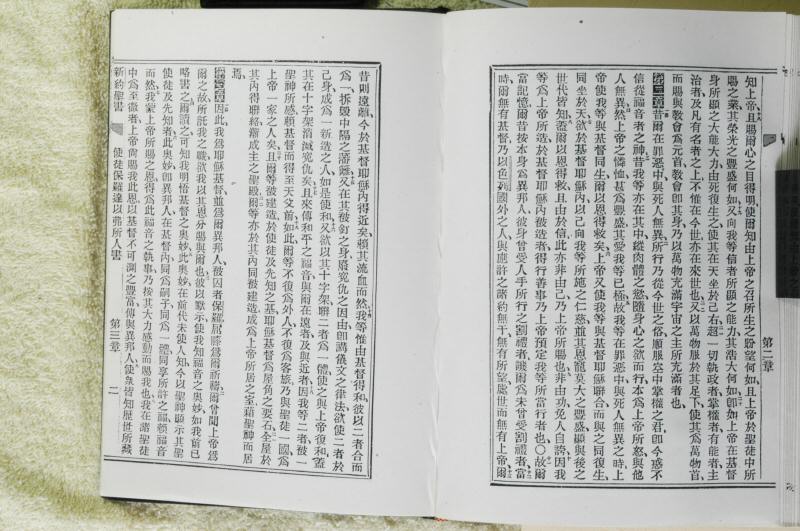 知上帝且賜爾心之目得明使爾知由上帝之召所生之盼望何如且上帝於聖徒中所
賜之業其榮光之豐盛何如又向我等信者所顯之能力其浩大何如卽如上帝在基督
身所顯之大能大力由死復生之使其在天坐於己右超一切執政者掌權者有能者主
治者及凡有名者之上不惟在今世亦在來世也又以萬物服於其足下使其爲萬物首
而賜與敎會爲元首敎會卽其身乃以萬物充滿宇宙之主所充滿者也
第二章昔爾在罪惡中與死人無異所行乃從今世之俗順服空中掌權之君卽今惑不
信從福音者之神昔我等亦在其中縱肉體之慾隨身心之欲而行本爲上帝所怒與他
人無異然上帝之憐恤甚爲豐盛其愛我等已極故我等在罪惡中與死人無異之時上
帝使我等與基督同生爾以恩得救矣上帝又使我等與基督耶穌聯合而與之同復生
同坐於天欲於基督耶穌內以己向我等所施之仁慈並其恩寵莫大之豐盛顯與後之
世代皆知蓋爾以恩得救且由於信此亦非由己乃上帝所賜也非由功免人自誇因我
等爲上帝所造於基督耶穌內被造者得行善事乃上帝預定我等所當行者也〇故爾
當記憶爾昔按本身爲異邦人彼身曾受人手所行之割禮者譏爾爲未曾受割禮者當
時爾無有基督乃以色列國外之人與應許之諸約無干無有所望處世而無有上帝爾
第二章
昔則遠離今於基督耶穌內得近矣賴其流血而然我等惟由基督得和彼以二者合而
爲一拆毀中隔之藩籬又在其被釘之身廢寃仇之因由卽誡儀文之律法欲使二者於
己身成爲一新造之人如是使和又欲以其十字架聯二者爲一體使之與上帝復和蓋
其在十字架消滅寃仇矣且來傳和平之福音與爾在遠者及與近者因我等二者被一
聖神所感賴基督而得至天父前如此爾等不復爲外人不復爲客旅乃與聖徒一國爲
上帝一家之人矣且爾等被建造於使徒及先知之基耶穌基督爲屋角之要石全屋於
其內得聯絡漸成主之聖殿爾等亦於其內同被建造成爲上帝所居之室藉聖神而居
焉
第三章因此我爲耶穌基督並爲爾異邦人被囚者保羅屈膝爲爾祈禱爾曾聞上帝爲
爾之故所託我之職欲我以其恩分賜與爾也彼以默示使我知福音之奧妙如我前已
略書之爾讀之可知我明悟基督之奧妙此奧妙在前代未使人知今以聖神顯示其聖
使徒及先知者此奧妙卽異邦人在基督內同爲嗣子同爲一體同享所許之福賴福音
而然我蒙上帝所賜之恩得爲此福音之執事乃按其大力感動而賜我也我在諸聖徒
中爲至微者上帝尙賜我此恩以基督不可測之豐富傳與異邦人使衆皆知歷世所藏
新約聖書 使徒保羅達以弗所人書 第三章 二